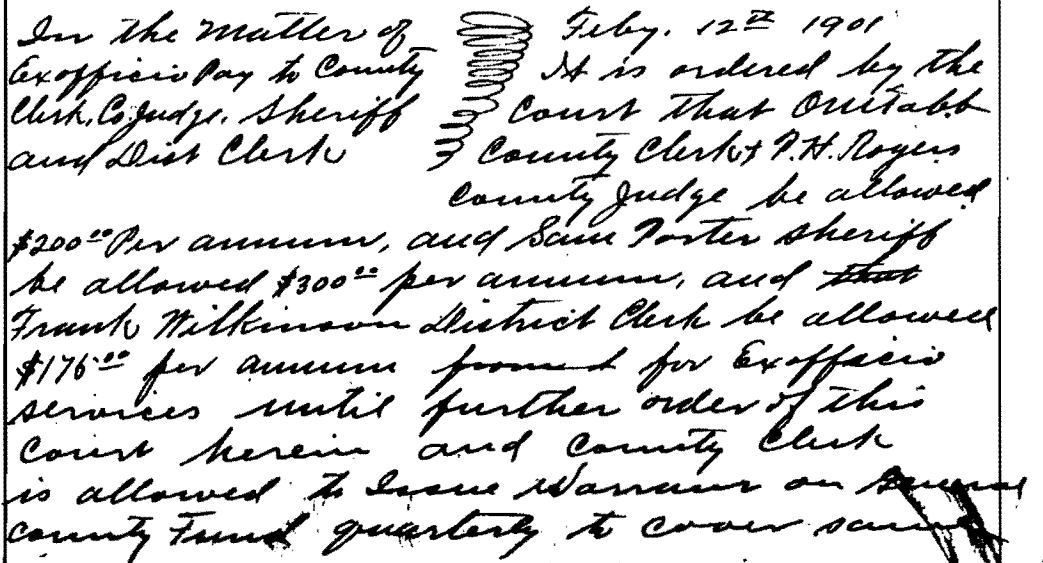 In the Matter of
Exofficio Pay to County
Clerk, Co. Judge, Sheriff
and Dist Clerk
Feby. 12th 1901
It is ordered by the
Court that
County Clerk & P. H. Rogers
County Judge be allowed
$200.00 Per annum, and Sam Porter Sheriff
be allowed $300.00 per annum, and that
Frank Wilkinson District Clerk be allowed
$175.00 per annum for Exofficio
services until further order of this
Court herein and County Clerk
is allowed to Issue Warrant on General
County Fund quarterly to cover same